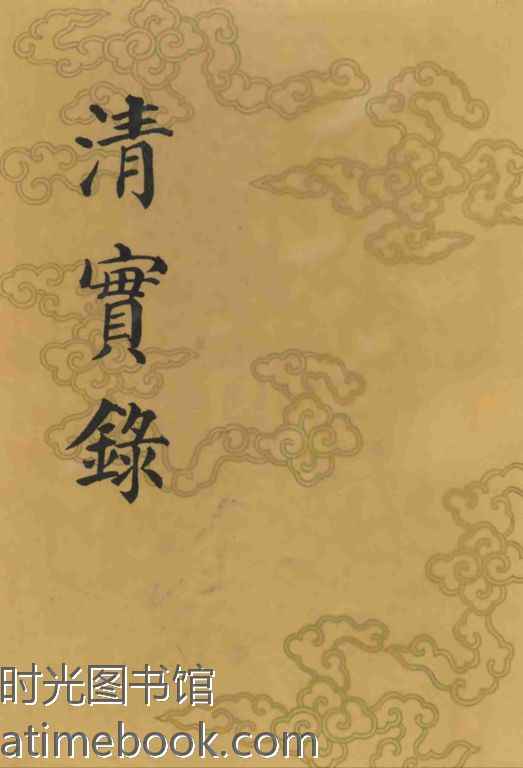 清實錄
时光图书馆
atimebook.com